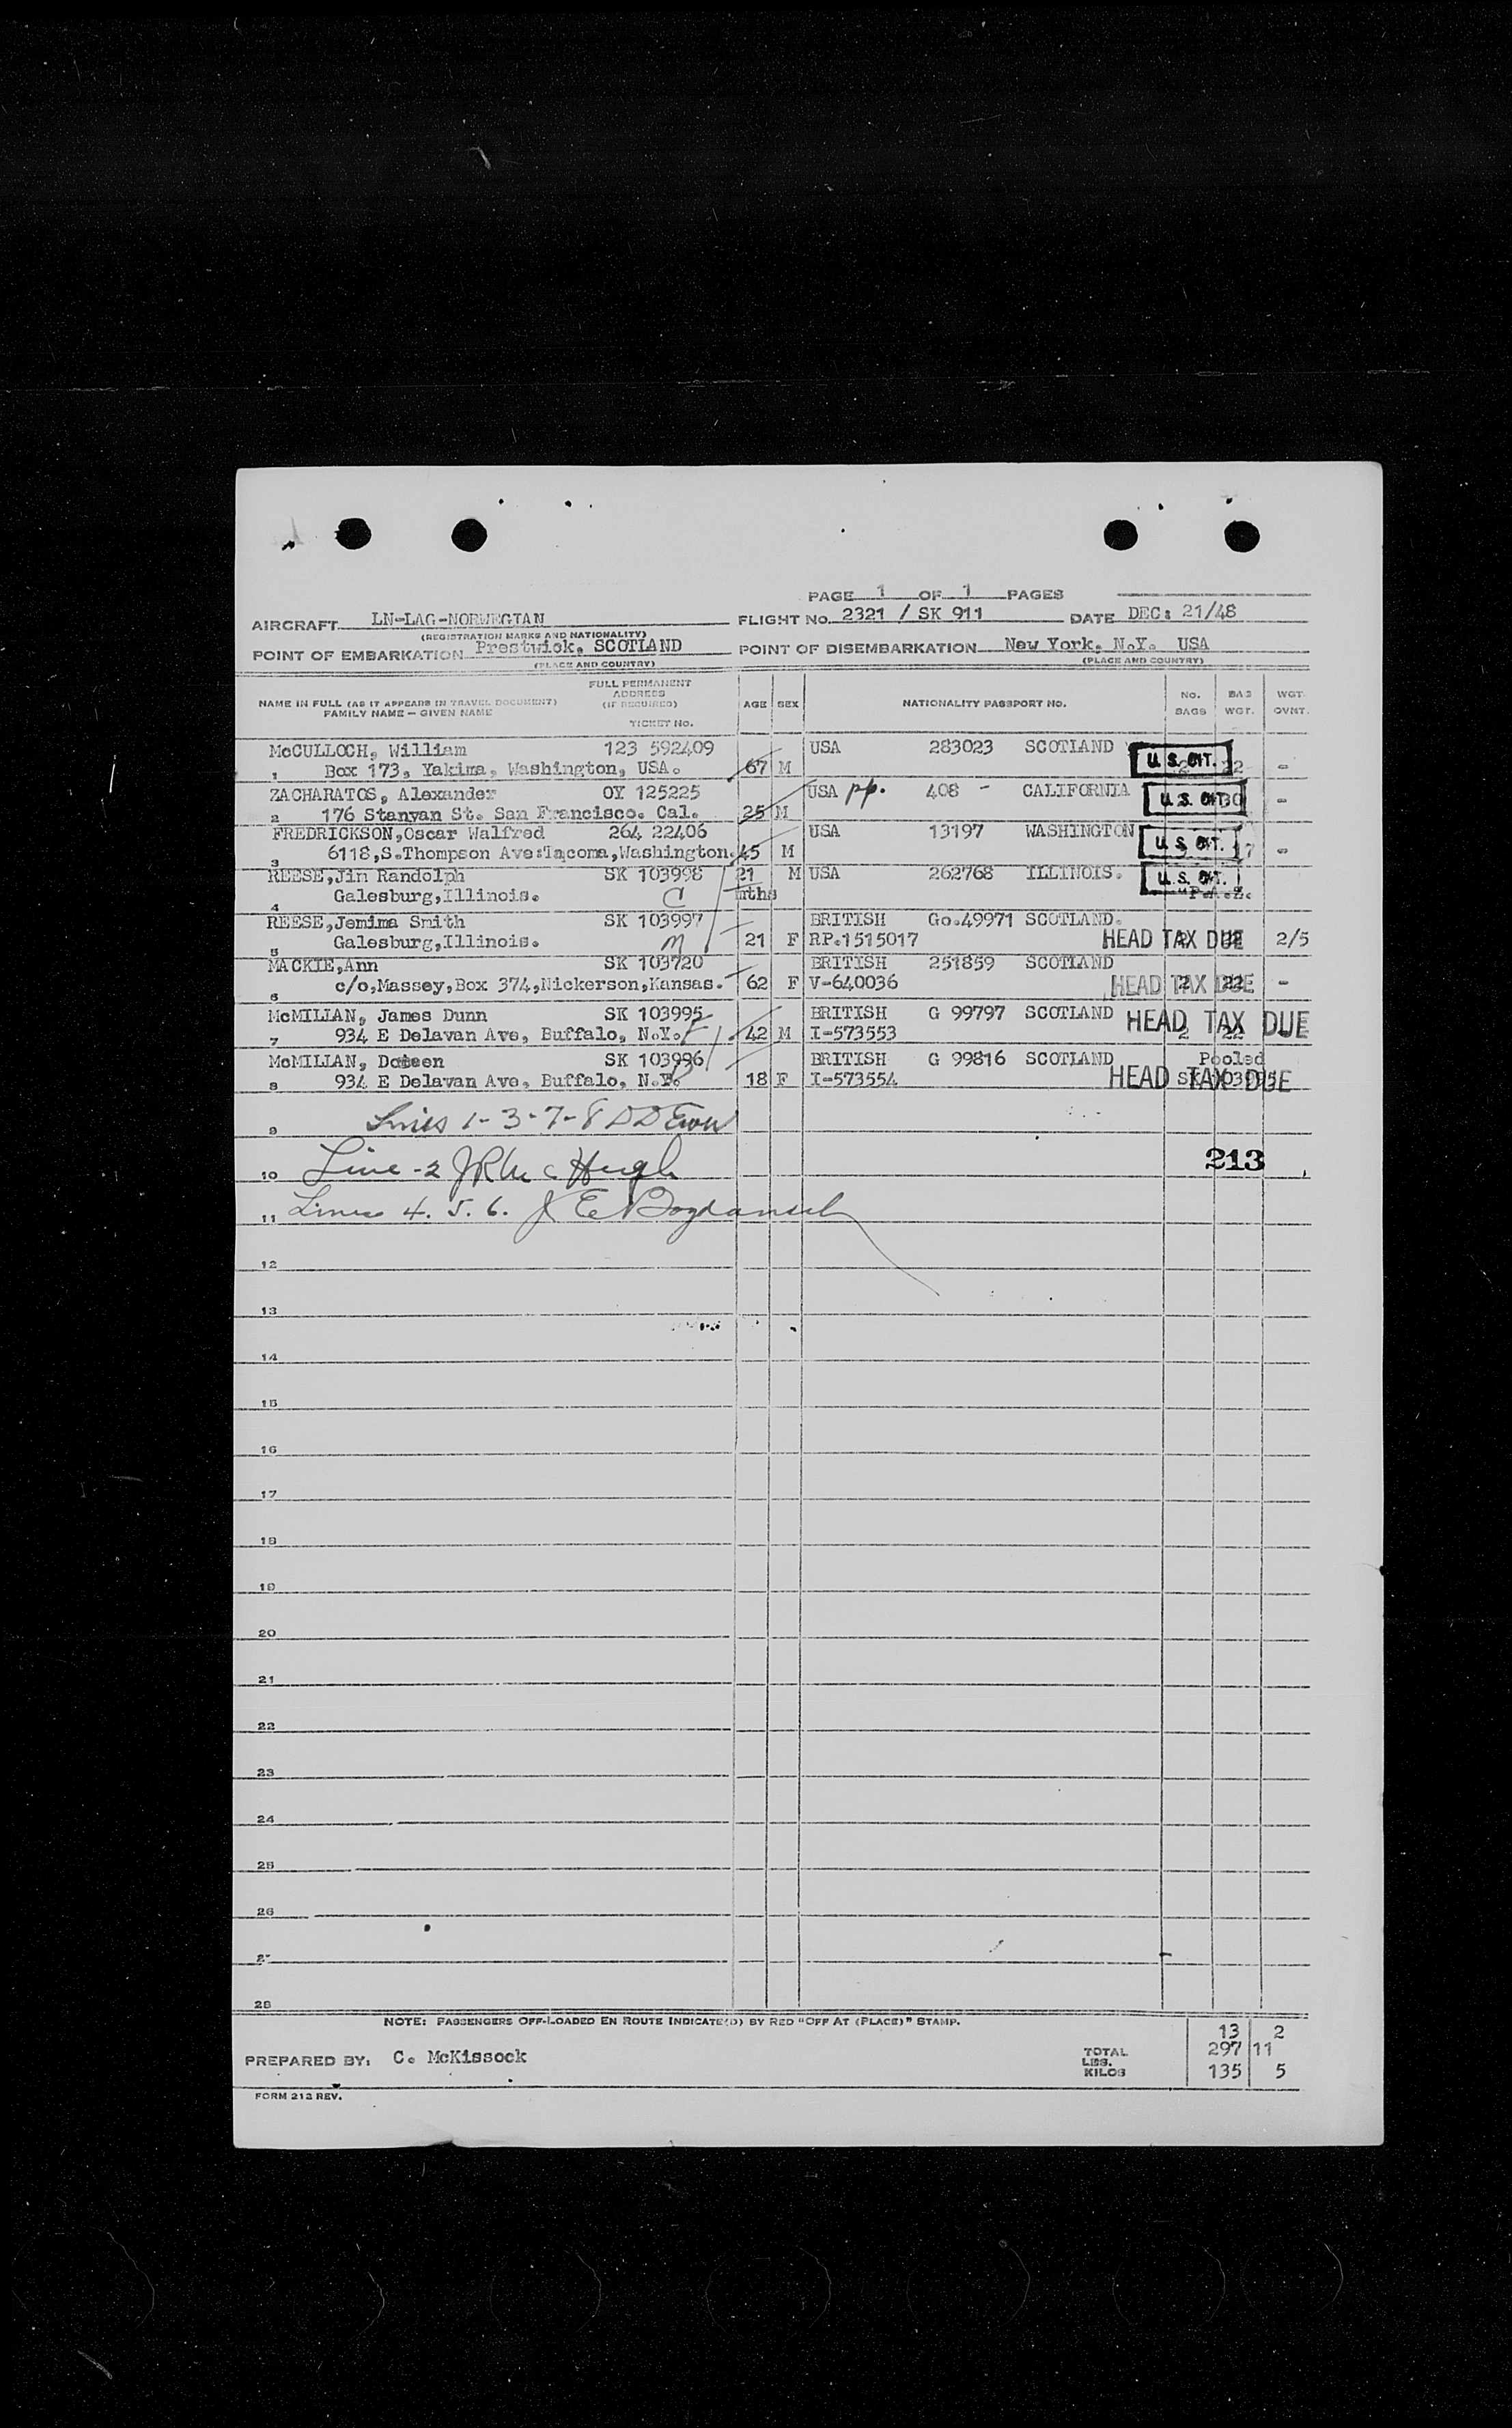 PAGE 1 OF 1 PAGES
AIRCRAFT LN-LAG-NORWEGIAN FLIGHT NO. 2321 / SK 911 DATE DEC: 21/48
(REGISTRATION MARKS AND NATIONALITY)
POINT OF EMBARKATION Prestwick, SCOTLAND POINT OF DISEMBARKATION New York, N.Y. USA
(PLACE AND COUNTRY) (PLACE AND COUNTRY)
FULL PERMANENT
ADDRESS
NAME IN FULL (AS IT APPEARS IN TRAVEL DOCUMENT) (IF REQUIRED) AGE SEX NATIONALITY PASSPORT NO. NO. BAG WGT.
FAMILY NAME - GIVEN NAME BAGS WGT. OVNT.
TICKET NO.
McCULLOCH, William 123 592409 USA 283023 SCOTLAND
1 Box 173, Yakima, Washington, USA. 67 M U.S. CIT. 2 22 -
ZACHARATOS, Alexander OY 125225 USA pp. 408 - CALIFORNIA
2 176 Stanyan St. San Francisco. Cal. 25 M U.S. CIT. 30 -
FREDRICKSON,Oscar Walfred 264 22406 USA 13197 WASHINGTON
3 6118,S.Thompson Ave:Tacoma,Washington. 45 M U.S. CIT. 17 -
REESE,Jim Randolph SK 103998 21 M USA 262768 ILLINOIS. U.S. CIT.
4 Galesburg,Illinois. C mths
REESE,Jemima Smith SK 103997 BRITISH Go.49971 SCOTLAND.
5 Galesburg,Illinois. M 21 F RP.1515017 HEAD TAX DUE 2/5
MACKIE,Ann SK 103720 BRITISH 251859 SCOTLAND
6 c/o,Massey,Box 374,Nickerson,Kansas. 62 F V-640036 HEAD TAX DUE 2 22 -
McMILLAN, James Dunn SK 103995 BRITISH G 99797 SCOTLAND HEAD TAX DUE
7 934 E Delavan Ave, Buffalo, N.Y. F 42 M I-573553 2 22
McMILLAN, Doreen SK 103996 BRITISH G 99816 SCOTLAND Pooled
8 934 E Delavan Ave, Buffalo, N.Y. 18 F I-573554 HEAD TAX DUE SK 103995
9 Lines 1-3-7-8 DD
10 Line -2 JR McHugh 213
11 Lines 4. 5. 6. J E
12
13
14
15
16
17
18
19
20
21
22
23
24
25
26
27
28
NOTE: PASSENGERS OFF-LOADED EN ROUTE INDICATE(D) BY RED "OFF AT (PLACE)" STAMP.
13 2
PREPARED BY: C. McKissock TOTAL 297 11
LBS.
KILOS 135 5
FORM 213 REV.